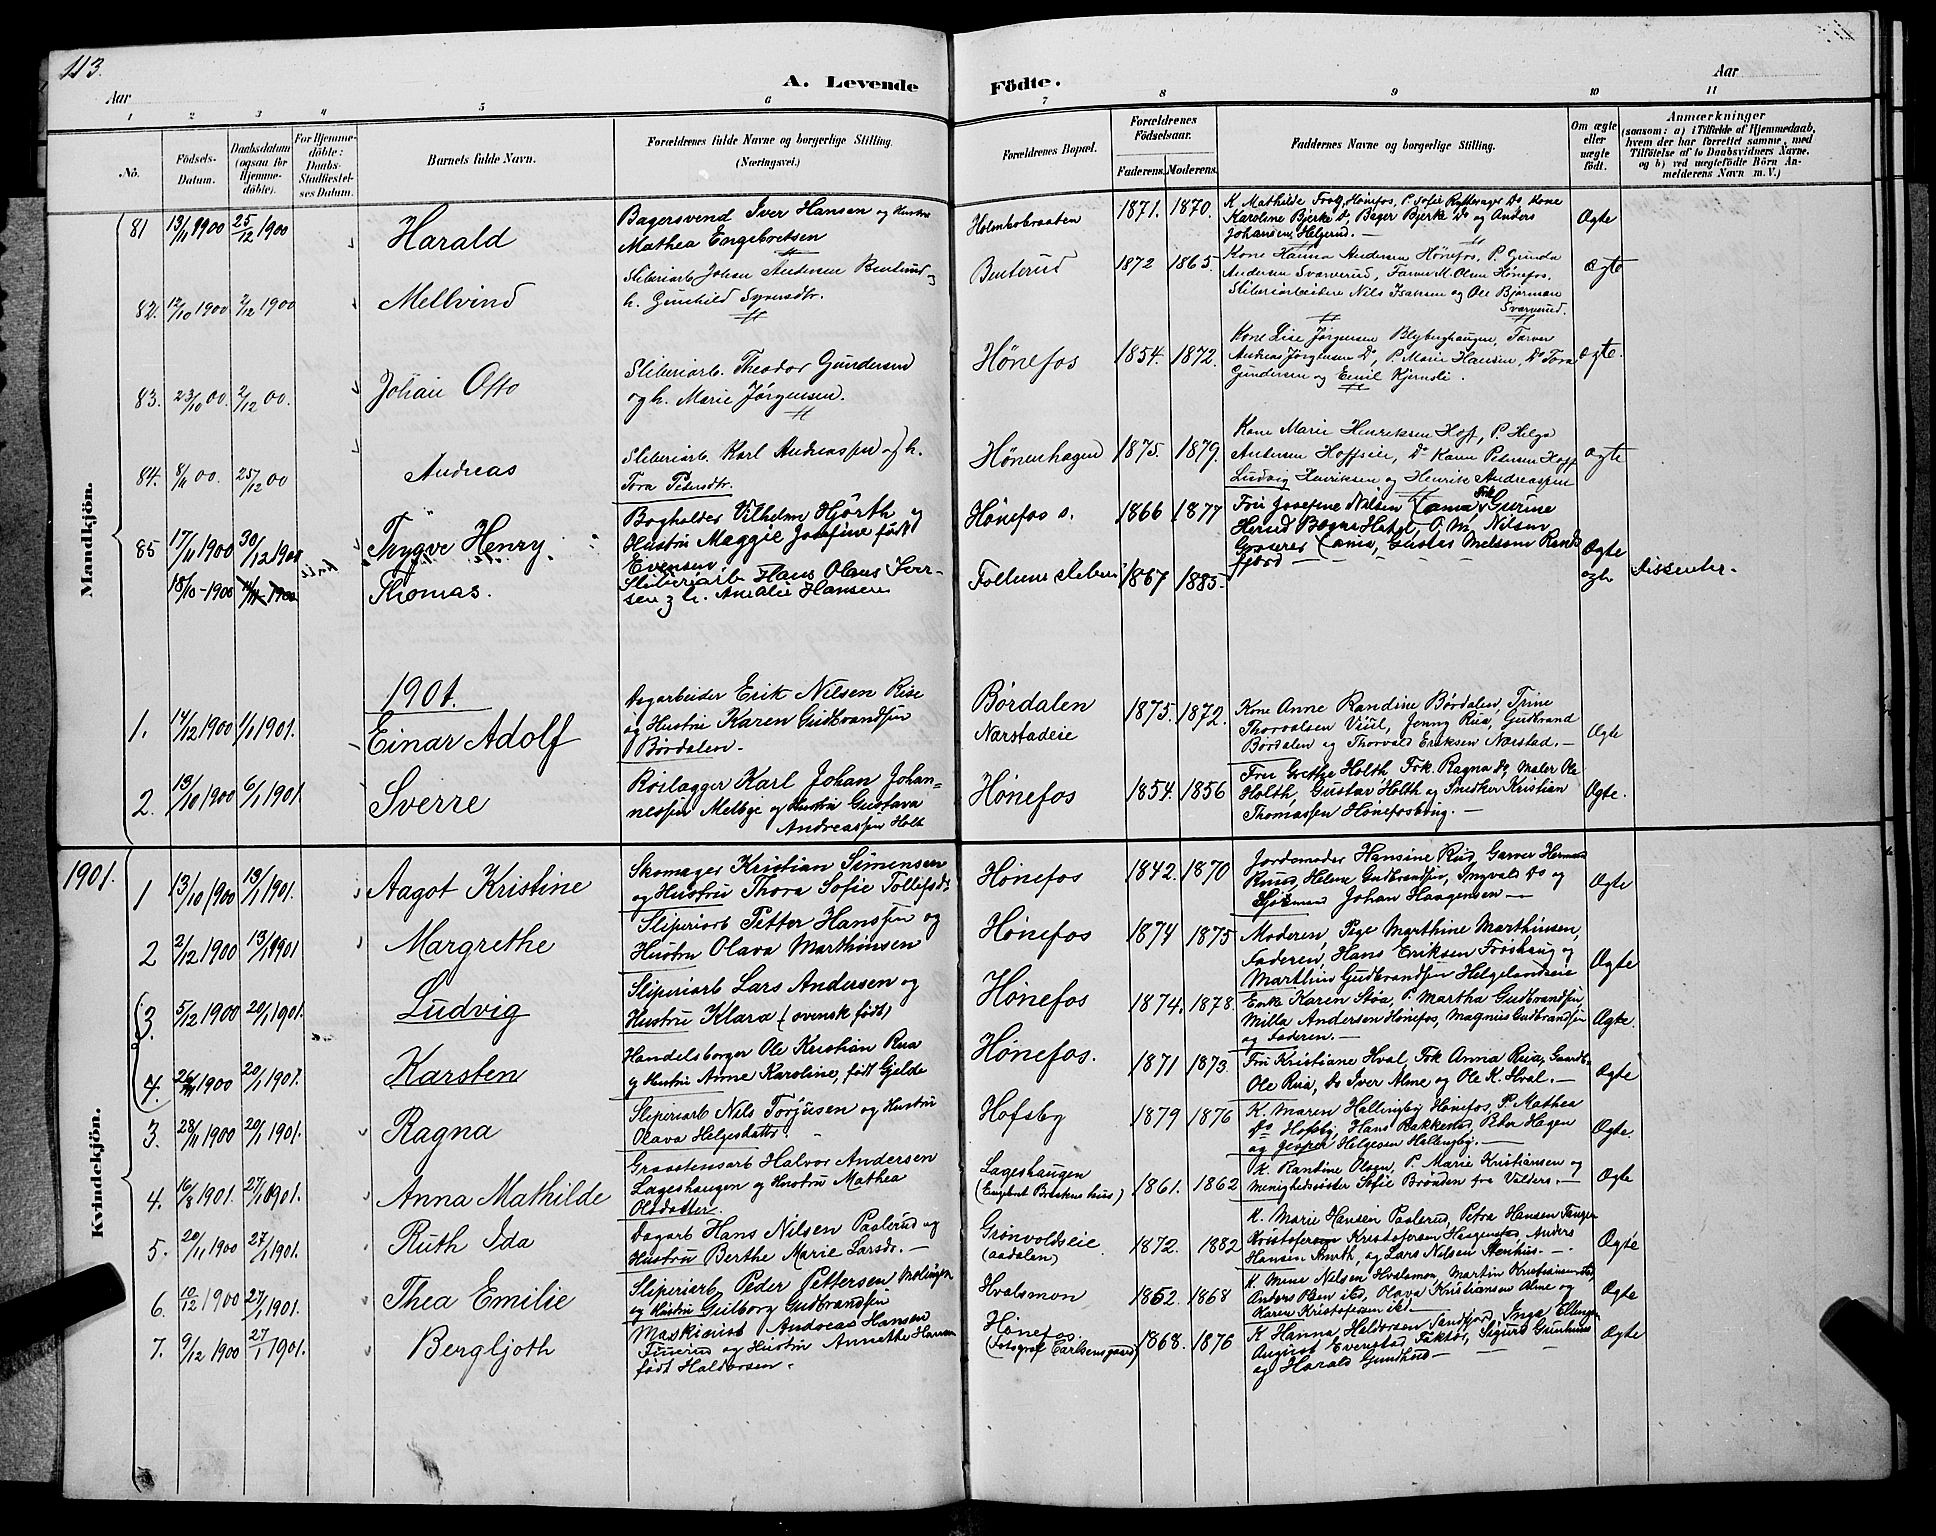 113.
A. Levende Födte.
Aar
Aar
1 2 3 4 5 6 7 8 9 10 11
No.
Födsels-Datum.
Daabsdatum (ogsaa for Hjemmedöbte).
For Hjemmedöbte: Daabs Stadfæstelses Datum.
Barnets fulde Navn.
Forældrenes fulde Navne og borgerlige Stilling. (Næringsvei.)
Forældrenes Bopæl.
Forældrenes Födselsaar.
Faderens. Moderens.
Faddernes Navne og borgerlige Stilling.
Om ægte eller uægte födt.
Anmærkninger
(saasom: a) i Tilfælde af Hjemmedaab, hvem der har forrettet samme, med Tilföielse af to Daabsvidners Navne, og b) ved uægtefödte Börn Anmelderens Navn m. V.)
Mandkjön.
81 13/11 1900 25/12 1900 Harald Bagersvend Iver Hansen og Hustru Mathea Engebretsen Holmbobraaten 1871. 1870. Karoline Bjerke Do, Bager Bjerke Do og Anders Johansen, Helgerud. Ægte
82. 12/10 1900 2/12 1900 Mellvind Sliberiarb. Johan Andersen Benterud og h. Gunhild Syversdtr. Benterud 1872 1865. Kone Hanna Andersen Hønefos, P. Gunda Andersen Svarverud, Farver M. Olsen Hønefos. Sliberiarbeidere Nils Isaksen og Ole Bjørman Svarverud. Ægte
83. 23/10 00. 2/12 00. Johan Otto Sliberiarb. Theodor Gundersen og h. Marie Jørgensen. Hønefos 1854. 1872. Kone Lise Jørgensen Blyberghaugen, Farver Andreas Jørgensen Do, P. Marie Hansen, Do Tora Gundersen og Emil Kjernsli. Ægte.
84. 8/11 00. 25/12 00 Andreas Sliberiarb. Karl Andreassen og h. Tora Petersdtr. Hønenhagen 1875. 1879. Kone Marie Henriksen Hoff, P. Helga Andersen Hoffseie, Do Karen Petersen Hoff Ludvig Henriksen og Henrik Andreassen Ægte
85 17/11 1900 30/12 1900 Trygve Henry. Bogholder Vilhelm Hjorth og Hustru Maggie Josefine født Evensen Hønefos s. 1866 1877 Fru Josefine Nilsen Cania, Frk Gurine Hotel, O. M. Nilsen Groserer Cania, Gustav Ægte
18/10 - 1900 Thomas. Sliberiarb Hans Olaus Iversen & h. Amalie Hansen 1867 1885. ægte Dissenter.
1901.
1. 14/12 1900 1/1 1901. Einar Adolf Dagarbeider Erik Nilsen Rise og Hustru Karen Gudbrandsen Børdalen. Børdalen Narstadeie 1875. 1872. Kone Anne Randine Børdalen, Trine Thorvalsen Viul, Jenny Rua, Gudbrand Børdalen og Thorvald Eriksen Narstad. Ægte
2. 13/10 1900 6/1 1901 Sverre Karl Johan Johannessen Melbye og Hustru Gustava Andreassen Holt Hønefos 1854. 1856 Fru Grethe Holth, Frk. Ragna Do, Maler Ole Holth, Gustav Holth og Snedker Kristian Thomassen Hønefos. Ægte.
1901.
Kvindekjön.
1 13/10 1900 13/1 1901. Aagot Kristine Skomager Kristian Simensen og Hustru Thora Sofie Tollefsdtr Hønefos 1842. 1870 Jordemoder Hansine Rud, Garver Herman Ruud, Helene Gudbrandsen, Ingvald Do og Johan Haagensen Ægte
2 2/12 1900 13/1 1901 Margrethe Sliperiarb Petter Hanssen og Hustru Olava Marthinsen Hønefos 1874 1875 Moderen, Pige Marthine Marthinsen, Faderen, Hans Eriksen Frøshaug og Marthin Gudbrandsen Helgelandseie Ægte
3. 5/12 1900 20/1 1901. Ludvig Sliperiarb Lars Andersen og Hustru Klara (svensk født) Hønefos 1874. 1878. Enke Karen Støa, P. Martha Gudbrandsen, Milla Andersen Hønefos, Magnus Gudbrandsen og Faderen. Ægte.
4. 26/11 1900 20/1 1901. Karsten Handelsborger Ole Kristian Rua og Hustru Anne Karoline, født Gjelde Hønefos. 1871 1873 Fru Kristiane Hval, Frk Anna Rua, Gaardb. Ole Rua, Do Iver Alme og Ole K. Hval. Ægte
3. 28/11 1900 20/1 1901. Ragna Sliperiarb Nils Torjusen og Hustru Olava Helgesdatter. Hofsby 1879 1876 K. Maren Hallingby Hønefos, P. Mathea Do Hofsby, Hans Bakkerud, Peter Hagen og Jesper Helgesen Hallingby. Ægte.
4. 16/8 1901. 27/1 1901. Anna Mathilde Graastensarb Halvor Andersen Lageshaugen og Hustru Mathea Olsdatter. Lageshaugen 1861. 1862 K. Randine Olsen, P. Marie Kristiansen og menighedssöster Sofie Brønden fra Valders. Ægte
5. 20/11 1900 27/1 1901. Ruth Ida Dagarb Hans Nilsen Paalerud og Hustru Berthe Marie Larsdr. Grønvoldseie (aadalen) 1872. 1882 K. Marie Hansen Paalerud, Petra Hansen Kristofersen Haagenstad, Anders Hansen og Lars Nilsen Stenhus. Ægte
6. 10/12 1900 27/1 1901. Thea Emilie Sliperiarb Peder Pettersen Molingen og Hustru Geilborg Gudbrandsen Hvalsmon 1862. 1868 K. Mine Nilsen Hvalsmon, Martin Kristiansen Anders Olava Kristiansen Alme og Karen Kristofersen ibd. Ægte
7. 9/12 1900 27/1 1901. Bergljoth Maskinist Andreas Hansen og Hustru Annethe Hansen født Haldorsen. Hønefos (Fotograf Carlsensgaard) 1868. 1876 K Hanna Haldorsen Sandfjord, Inga Ellingsen August Evenstad, Faktor, Sigurd og Harald Ægte